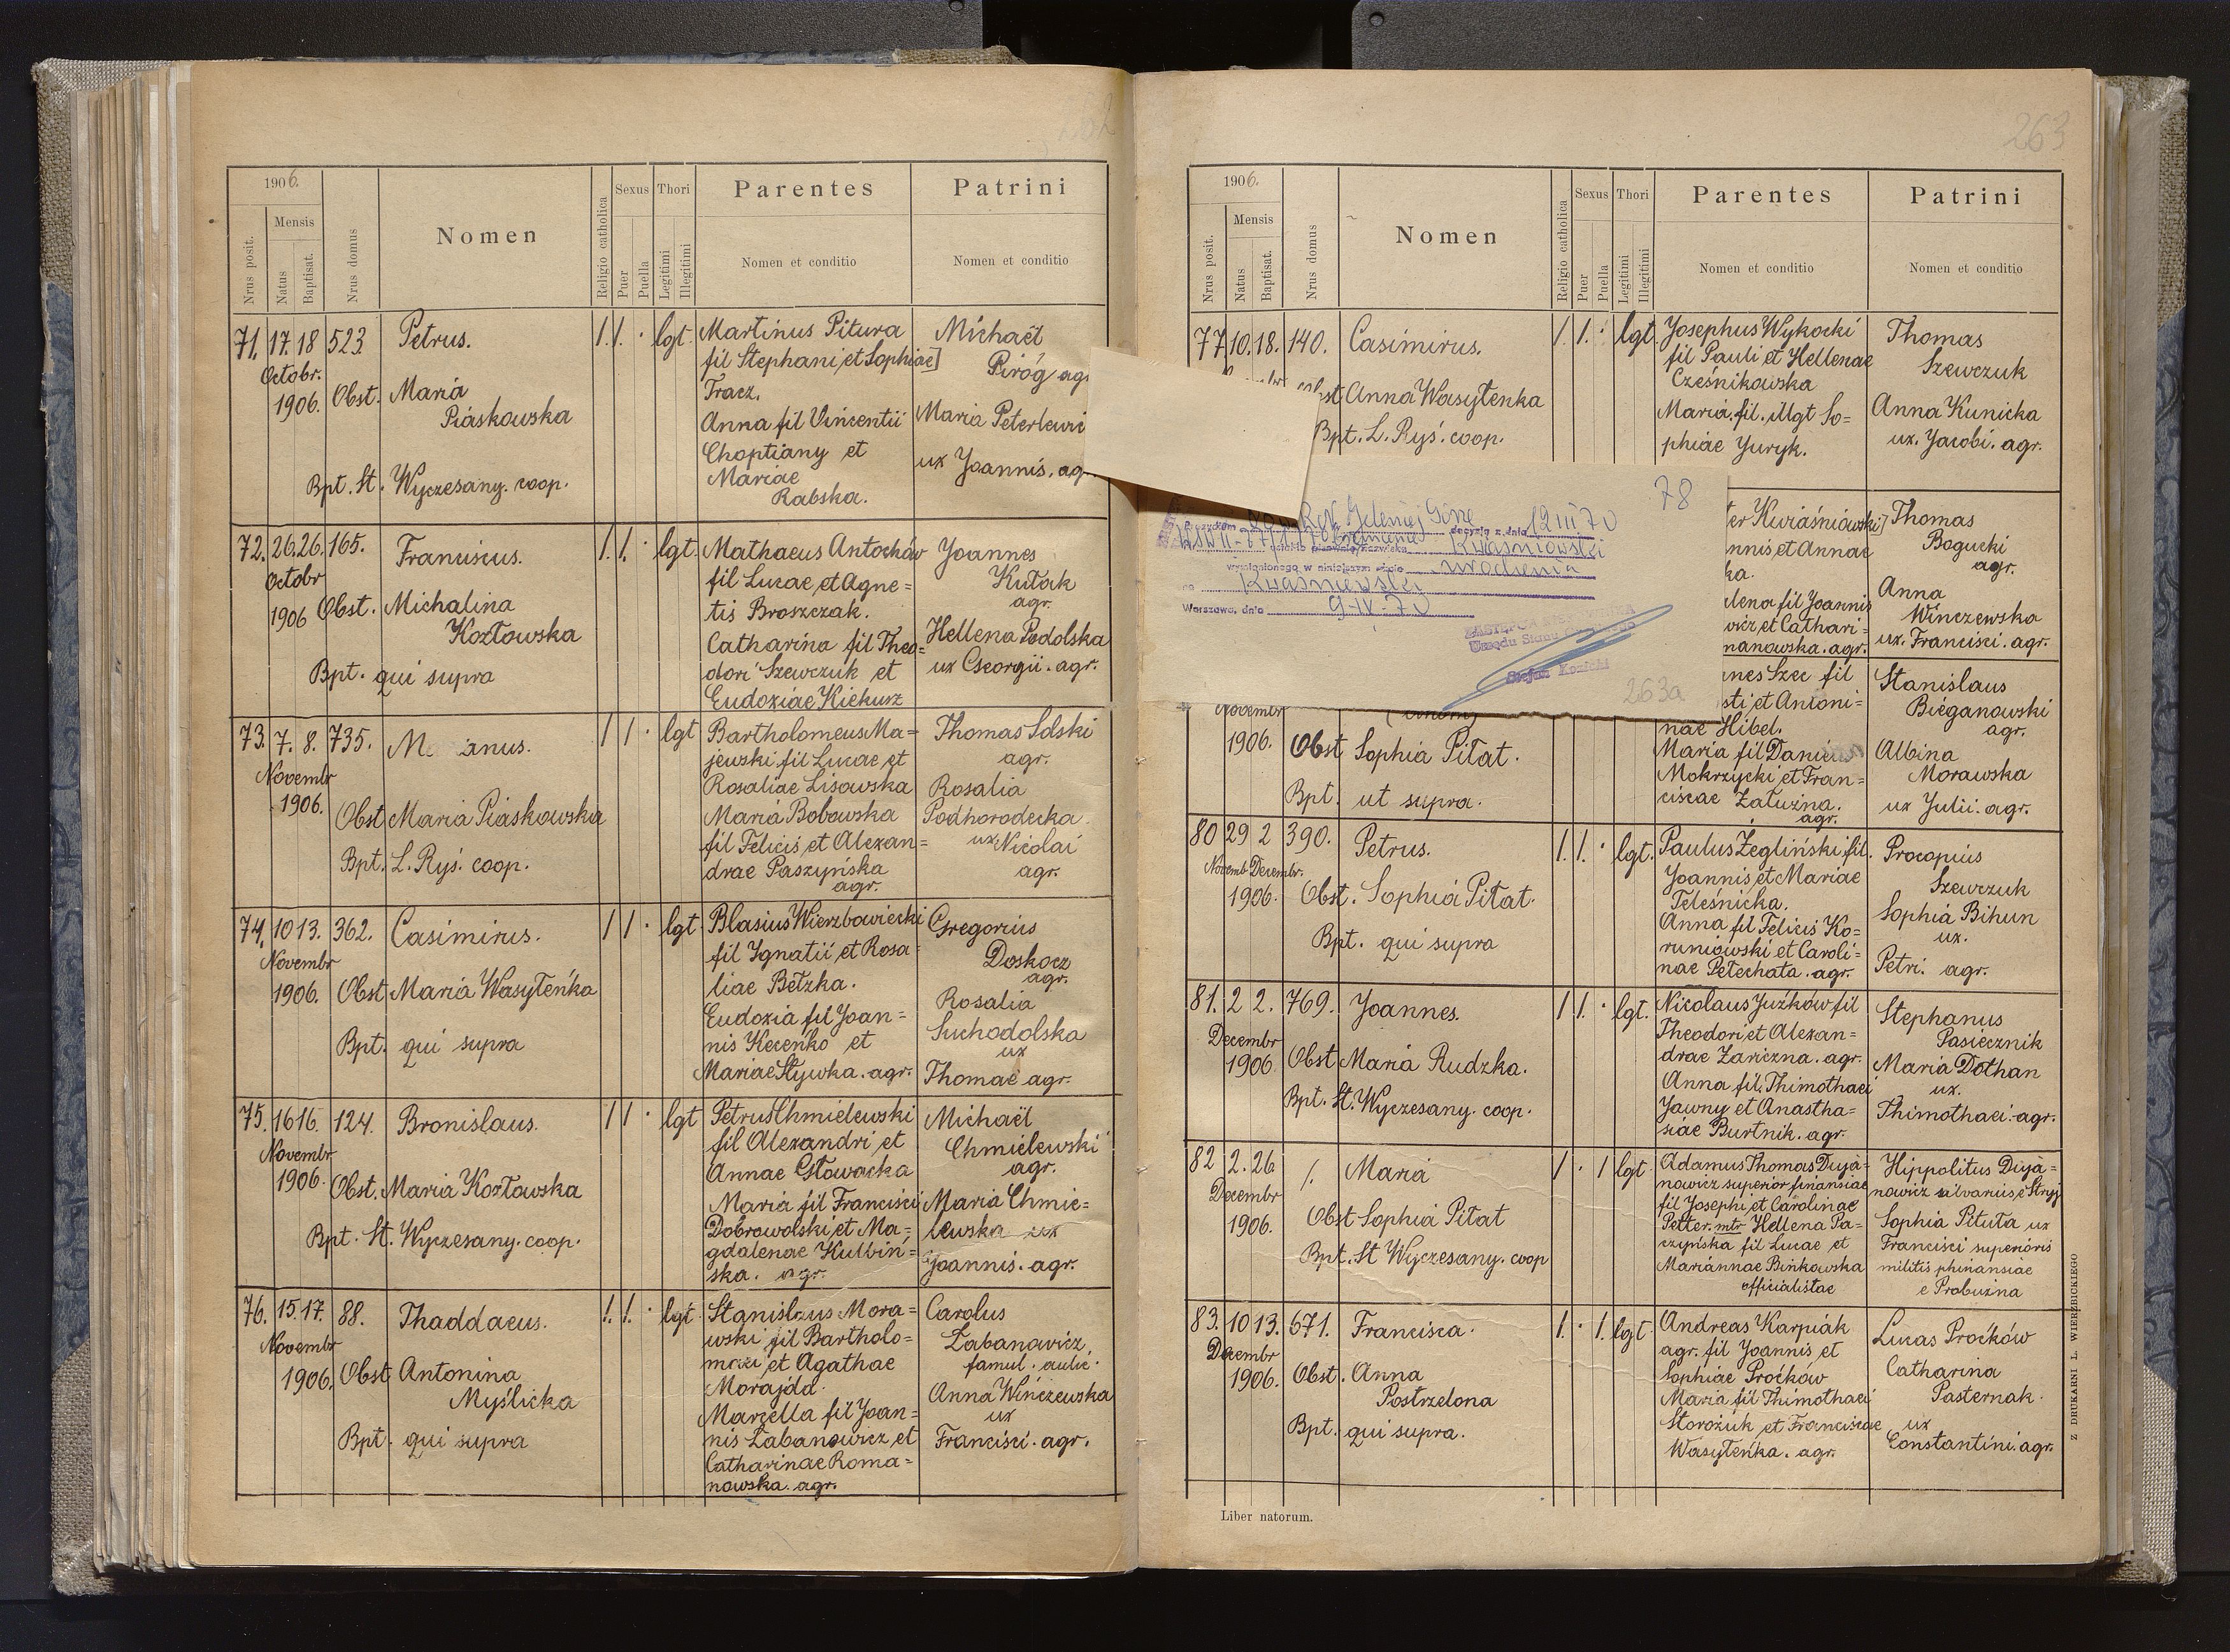 1906.
Nrus posit.
Mensis
Natus
Baptisat.
Nrus domus
Nomen
Religio catholica
Sexus
Puer
Puella
Thori
Legitimi
Illegitimi
Parentes
Nomen et conditio
Patrini
Nomen et conditio
71. 17. 18 523. Petrus. 1. 1. · lgt.
Octobr.
1906. Obst. Maria
Piaskowska
Bpt. St. Wyczesany. coop.
Martinus Pitura
fil Stephani et Sophiae]
Tracz.
Anna fil Vincentii
Choptiany et
Mariae
Rabska.
Michaël
Piróg
Maria
ux Joannis.
72. 26. 26. 165. Franciscus. 1. 1. · lgt.
Octobr
1906 Obst. Michalina
Kozłowska
Bpt. qui supra
Mathaeus Antochów
fil Lucae et Agne=
tis Broszczak.
Catharina fil Theo=
dori Szewczuk et
Eudoxiae Kiekurz
Joannes
Kułak
agr.
Hellena Podolska
ux Georgii. agr.
73. 7. 8. 735. 1 1 · lgt
Novembr
1906.
Obst Maria Piaskowska
Bpt. L. Ryś. coop.
Bartholomeus Ma=
jewski fil Lucae et
Rosaliae Lisowska
Maria Bobowska
fil Felicis et Alexan=
drae Paszyńska
agr.
Thomas Solski
agr.
Rosalia
Podhorodecka
ux. Nicolai
agr.
74. 10 13. 362. Casimirus. 1 1 · lgt.
Novembr
1906. Obst Maria Wasyłeńka
Bpt. qui supra
Blasius Wierzbowiecki
fil Ignatii et Rosa=
liae Bełzka.
Eudoxia fil Joan=
nis Keceńko et
Mariae Stywka. agr.
Gregorius
Doskocz
agr.
Rosalia
Suchodolska
ux
Thomae agr.
75. 16 16. 124. Bronislaus. 1 1 · lgt
Novembr
1906. Obst. Maria Kozłowska
Bpt. St. Wyczesany. coop.
Petrus Chmielewski
fil Alexandri et
Annae Głowacka
Maria fil Francisci
Dobrowolski et Ma=
gdalenae Kulbiń=
ska. agr.
Michaël
Chmielewski
agr.
Maria Chmie=
lewska ux
Joannis. agr.
76. 15. 17. 88. Thaddaeus. 1. 1. · lgt.
Novembr
1906. Obst Antonina
Myślicka
Bpt. qui supra
Stanislaus Mora=
wski fil Bartholo=
maei et Agathae
Morajda.
Marcella fil Joan=
nis Łabanowicz et
Catharinae Roma=
nowska. agr.
Carolus
Łabanowicz,
famul. aulic.
Anna Winczewska
ux
Francisci. agr.
263
1906.
Nrus posit.
Mensis
Natus
Baptisat.
Nrus domus
Nomen
Religio catholica
Sexus
Puer
Puella
Thori
Legitimi
Illegitimi
Parentes
Nomen et conditio
Patrini
Nomen et conditio
77 10. 18. 140. Casimirus. 1. 1. · lgt
Anna Wasyłenka
Bpt. L. Ryś. coop.
Josephus Wykocki
fil Pauli et Hellenae
Cześnikowska
Maria. fil. illgt So=
phiae Juryk.
Thomas
Szewczuk
Anna Kunicka
ux. Jacobi. agr.
78
Jeleniej Górze decyzją z dnia 12 III 70
Kwaśniowski
wymienionego w niniejszym akcie urodzenia
na Kwaśniewski
Warszawa, dnia 9-IV-70
Urzędu Stanu
Stefan Konicki
263a
Kwiaśniowski]
nnis et Annae
ka.
lena fil Joannis
wicz et Cathari=
nanowska. agr.
Thomas
Bogucki
agr.
Anna
Winczewska
ux. Francisci. agr.
Novembr
1906. Obst Sophia Pitat.
Bpt. ut supra.
nnes Szec fil
sti et Antoni=
nae Hibel.
Maria fil
Mokrzycki et Fran=
ciscae Załuźna.
agr.
Stanislaus
Bieganowski
agr.
Albina
Morawska
ux Julii. agr.
80 29 2 390. Petrus. 1. 1. · lgt.
Novemb Decembr.
1906. Obst. Sophia Pitat.
Bpt. qui supra
Paulus Żegliński fil.
Joannis et Mariae
Teleśnicka.
Anna fil Felicis Ko=
runiowski et Caroli=
nae Petechata. agr.
Procopius
Szewczuk
Sophia Bihun
ux.
Petri. agr.
81. 2 2. 769. Joannes. 1 1. · lgt.
Decembr
1906. Obst Maria Rudzka.
Bpt. St. Wyczesany. coop.
Nicolaus Juźków fil
Theodori et Alexan=
drae Zariczna. agr.
Anna fil. Thimothaei
Jawny et Anastha=
siae Burtnik. agr.
Stephanus
Pasiecznik
Maria Dothan
ux.
Thimothaei. agr.
82 2. 26 /. Maria 1 · 1 lgt
Decembr
1906. Obst Sophia Pitat
Bpt. St Wyczesany. coop
Adamus Thomas Duja=
nowicz superior finansiae
fil Josephi et Carolinae
Petter. mtr Hellena Pa=
czyńska fil Lucae et
Mariannae Bińkowska
officialistae
Hippolitus Duja=
nowicz silvarius e Stryj
Sophia Pituta ux
Francisci superioris
militis phinansiae
e Probuzna
83. 10 13. 671. Francisca. 1. · 1. lgt.
Decembr
1906. Obst. Anna
Postrzelona
Bpt. qui supra.
Andreas Karpiak
agr. fil Joannis et
Sophiae Proćków
Maria fil Thimothaei
Storożuk et Franciscae
Wasyłeńka. agr.
Lucas Proćków
Catharina
Pasternak.
ux
Constantini. agr.
Liber natorum.
Z DRUKARNI L. WIERZBICKIEGO